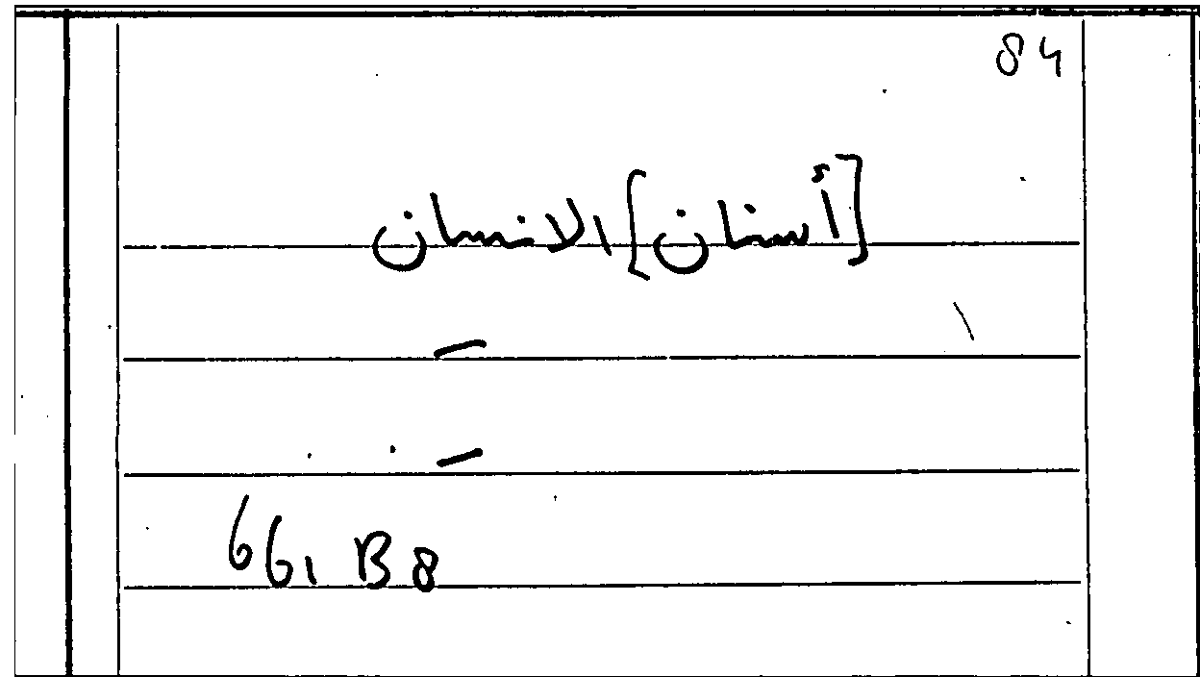 84
[أسنان] الانسان
١
661 B8